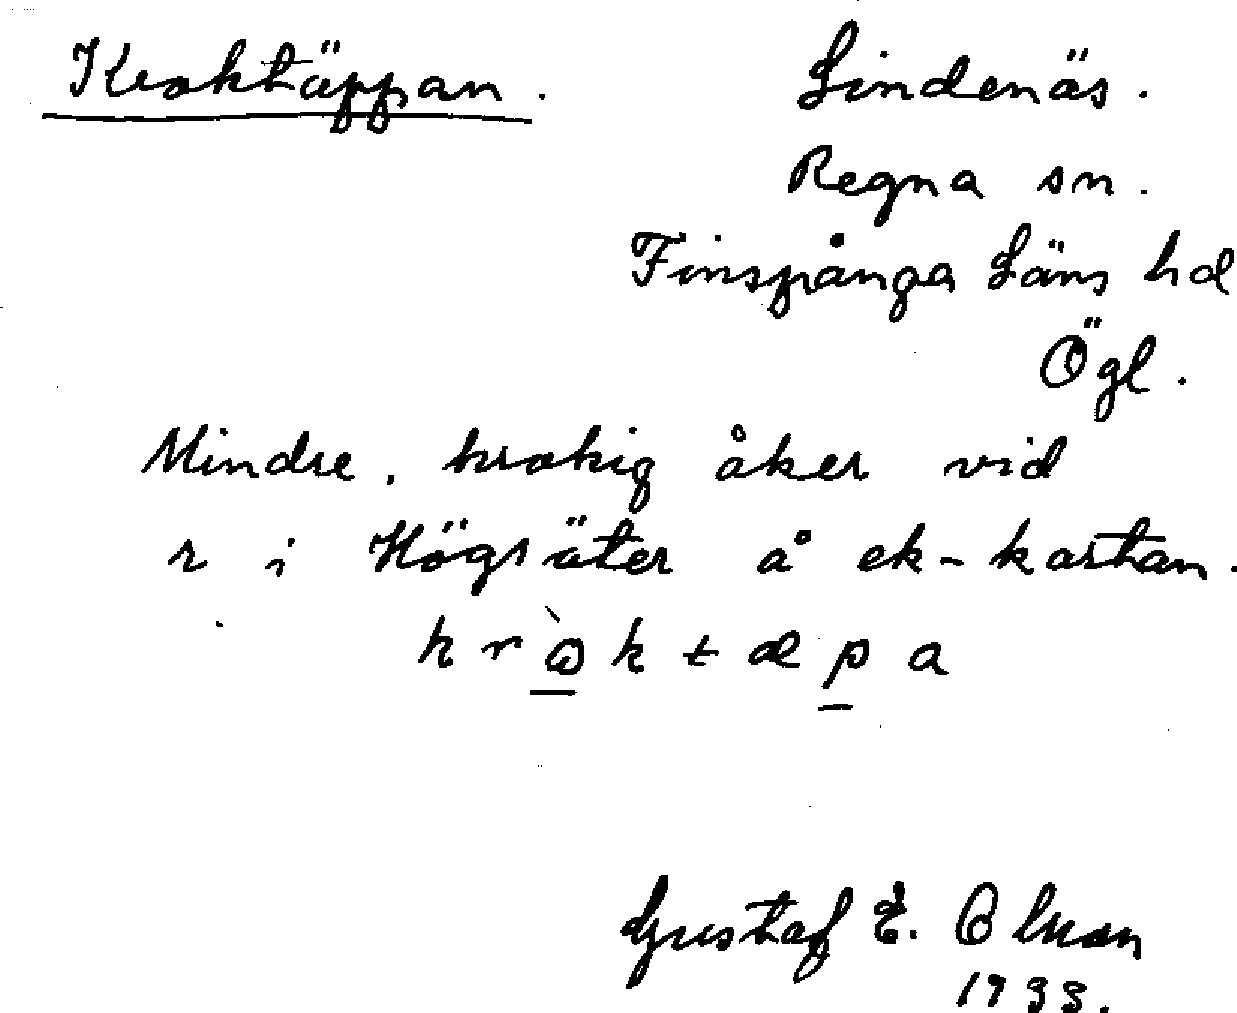 Kroktäppan.
Lindenäs.
Regna sn.
Finspånga Läns hd
Ögl.
Mindre, krokig åker vid
r i Högsäter å ek-kartan.
k r ὼ k t æ p a
Gustaf E. Olsson
1933.